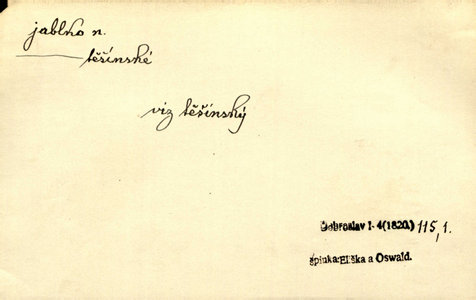 jablko n.
těšínské
viz těšínský
Dobroslav I- 4(1820.) 115,1.
Špinka: Eliška a Oswald.